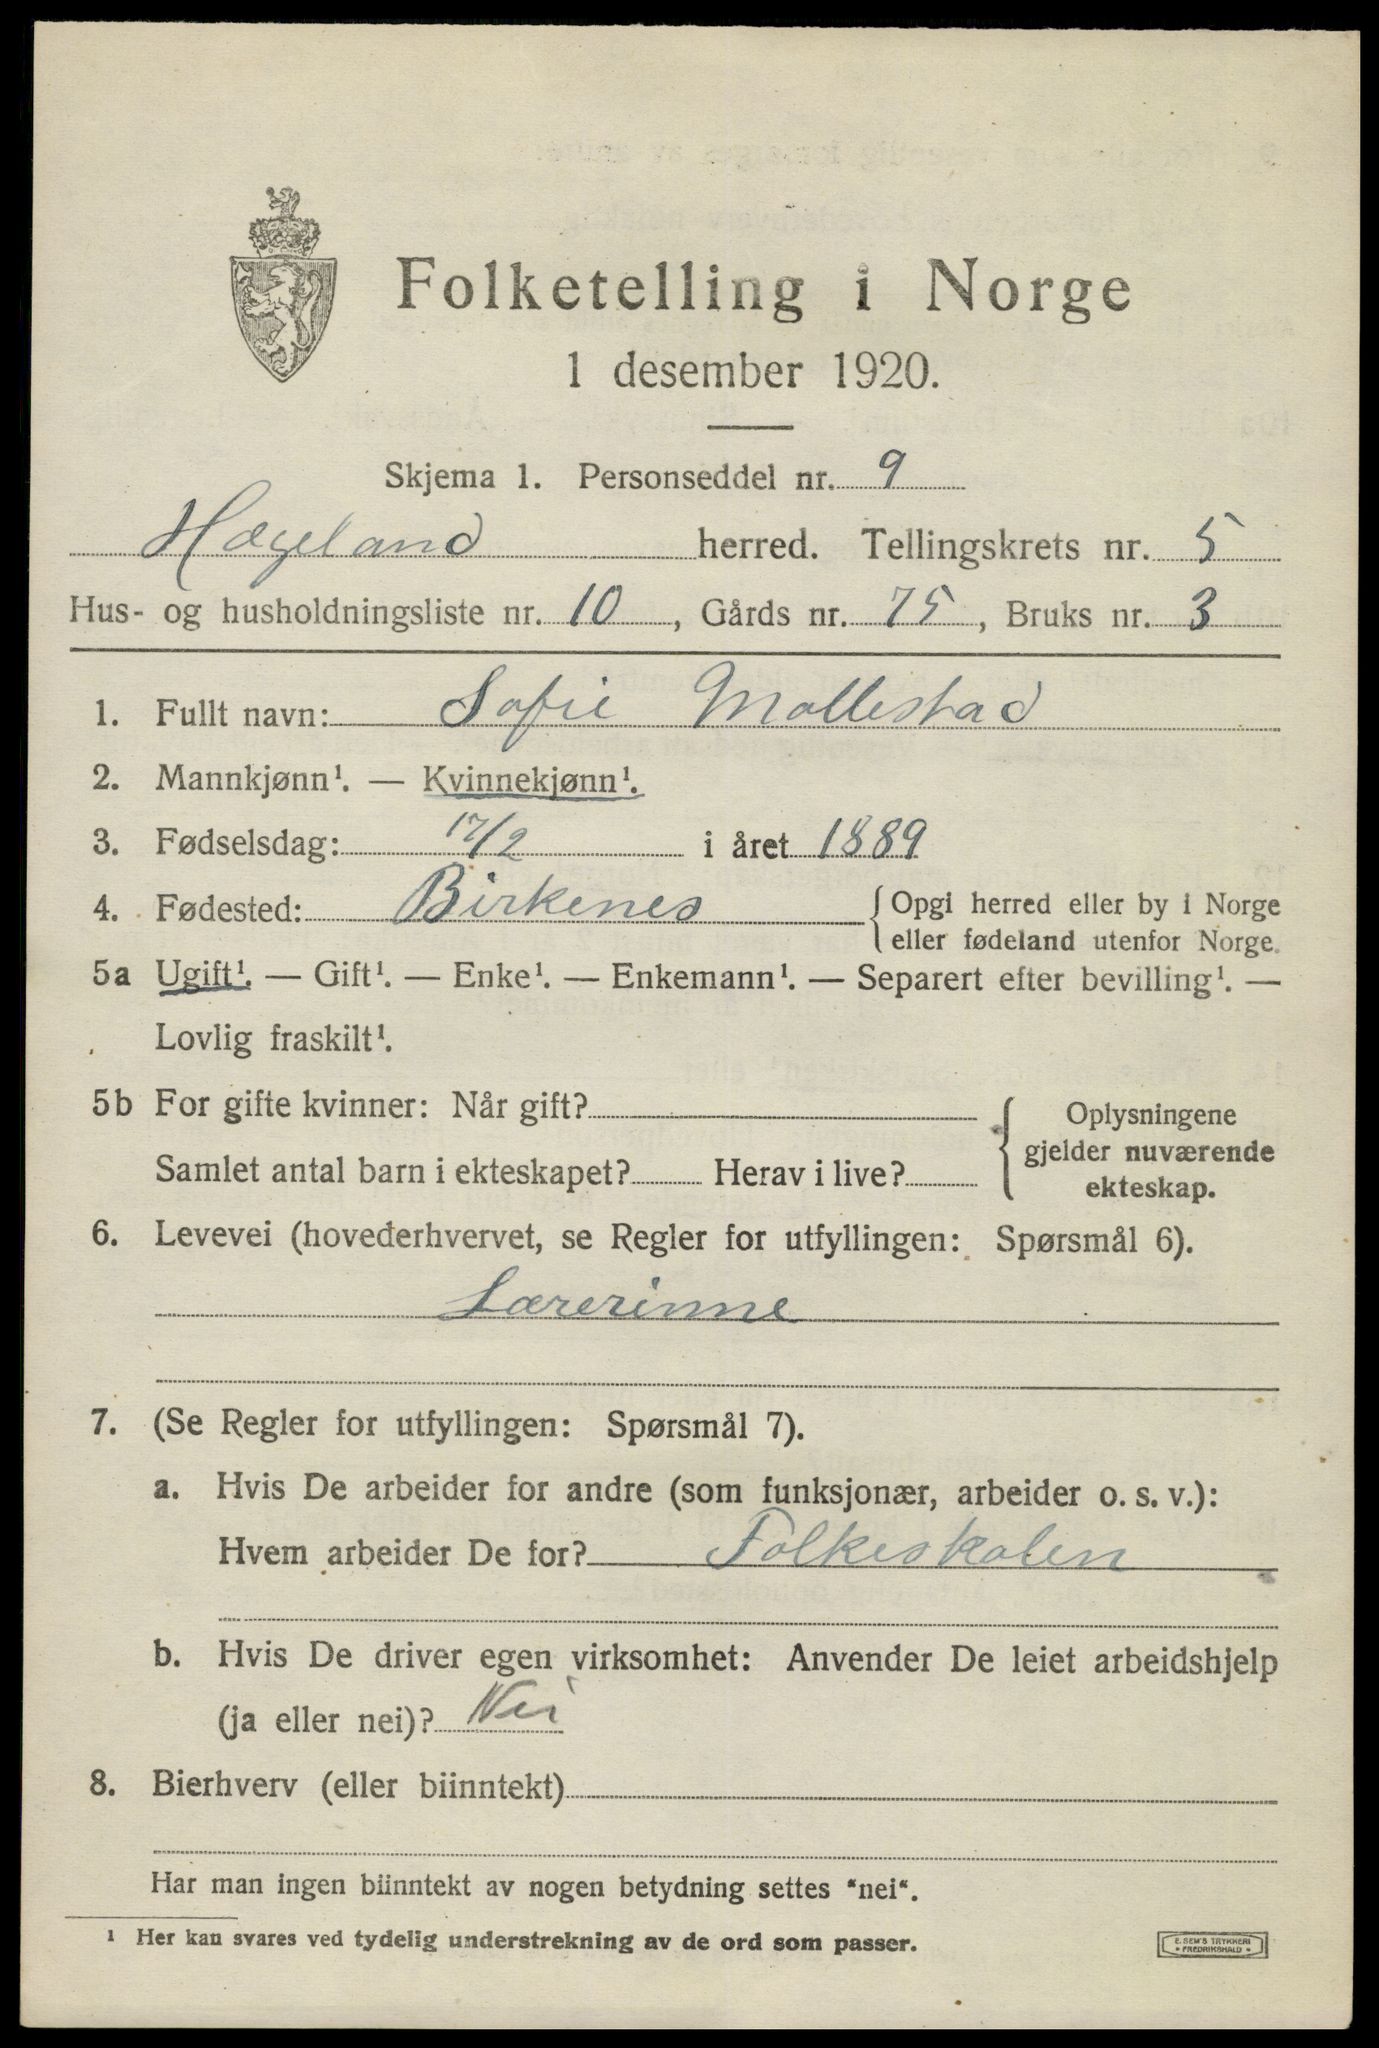 Folketelling i Norge
1 desember 1920.
Skjema 1. Personseddel nr. 9
Hægeland herred. Tellingskrets nr. 5
Hus- og husholdningsliste nr. 10, Gårds nr. 75, Bruks nr. 3
1. Fullt navn: Sofie Mollestad
2. Mannkjønn¹. — Kvinnekjønn¹.
3. Fødselsdag: 17/2 i året 1889
4. Fødested: Birkenes {Opgi herred eller by i Norge
eller fødeland utenfor Norge.
5a Ugift¹. — Gift¹. — Enke¹. — Enkemann¹. — Separert efter bevilling¹. —
Lovlig fraskilt¹.
5b For gifte kvinner: Når gift?
Samlet antal barn i ekteskapet? Herav i live?
Oplysningene
gjelder nuværende
ekteskap.
6. Levevei (hovederhvervet, se Regler for utfyllingen: Spørsmål 6).
Lærerinne
7. (Se Regler for utfyllingen: Spørsmål 7).
a. Hvis De arbeider for andre (som funksjonær, arbeider o. s. v.):
Hvem arbeider De for? Folkeskolen
b. Hvis De driver egen virksomhet: Anvender De leiet arbeidshjelp
(ja eller nei)? Nei
8. Bierhverv (eller biinntekt)
Har man ingen biinntekt av nogen betydning settes "nei".
¹ Her kan svares ved tydelig understrekning av de ord som passer.
E. SEM'S TRYKKERI
• FREDRIKSHALD •